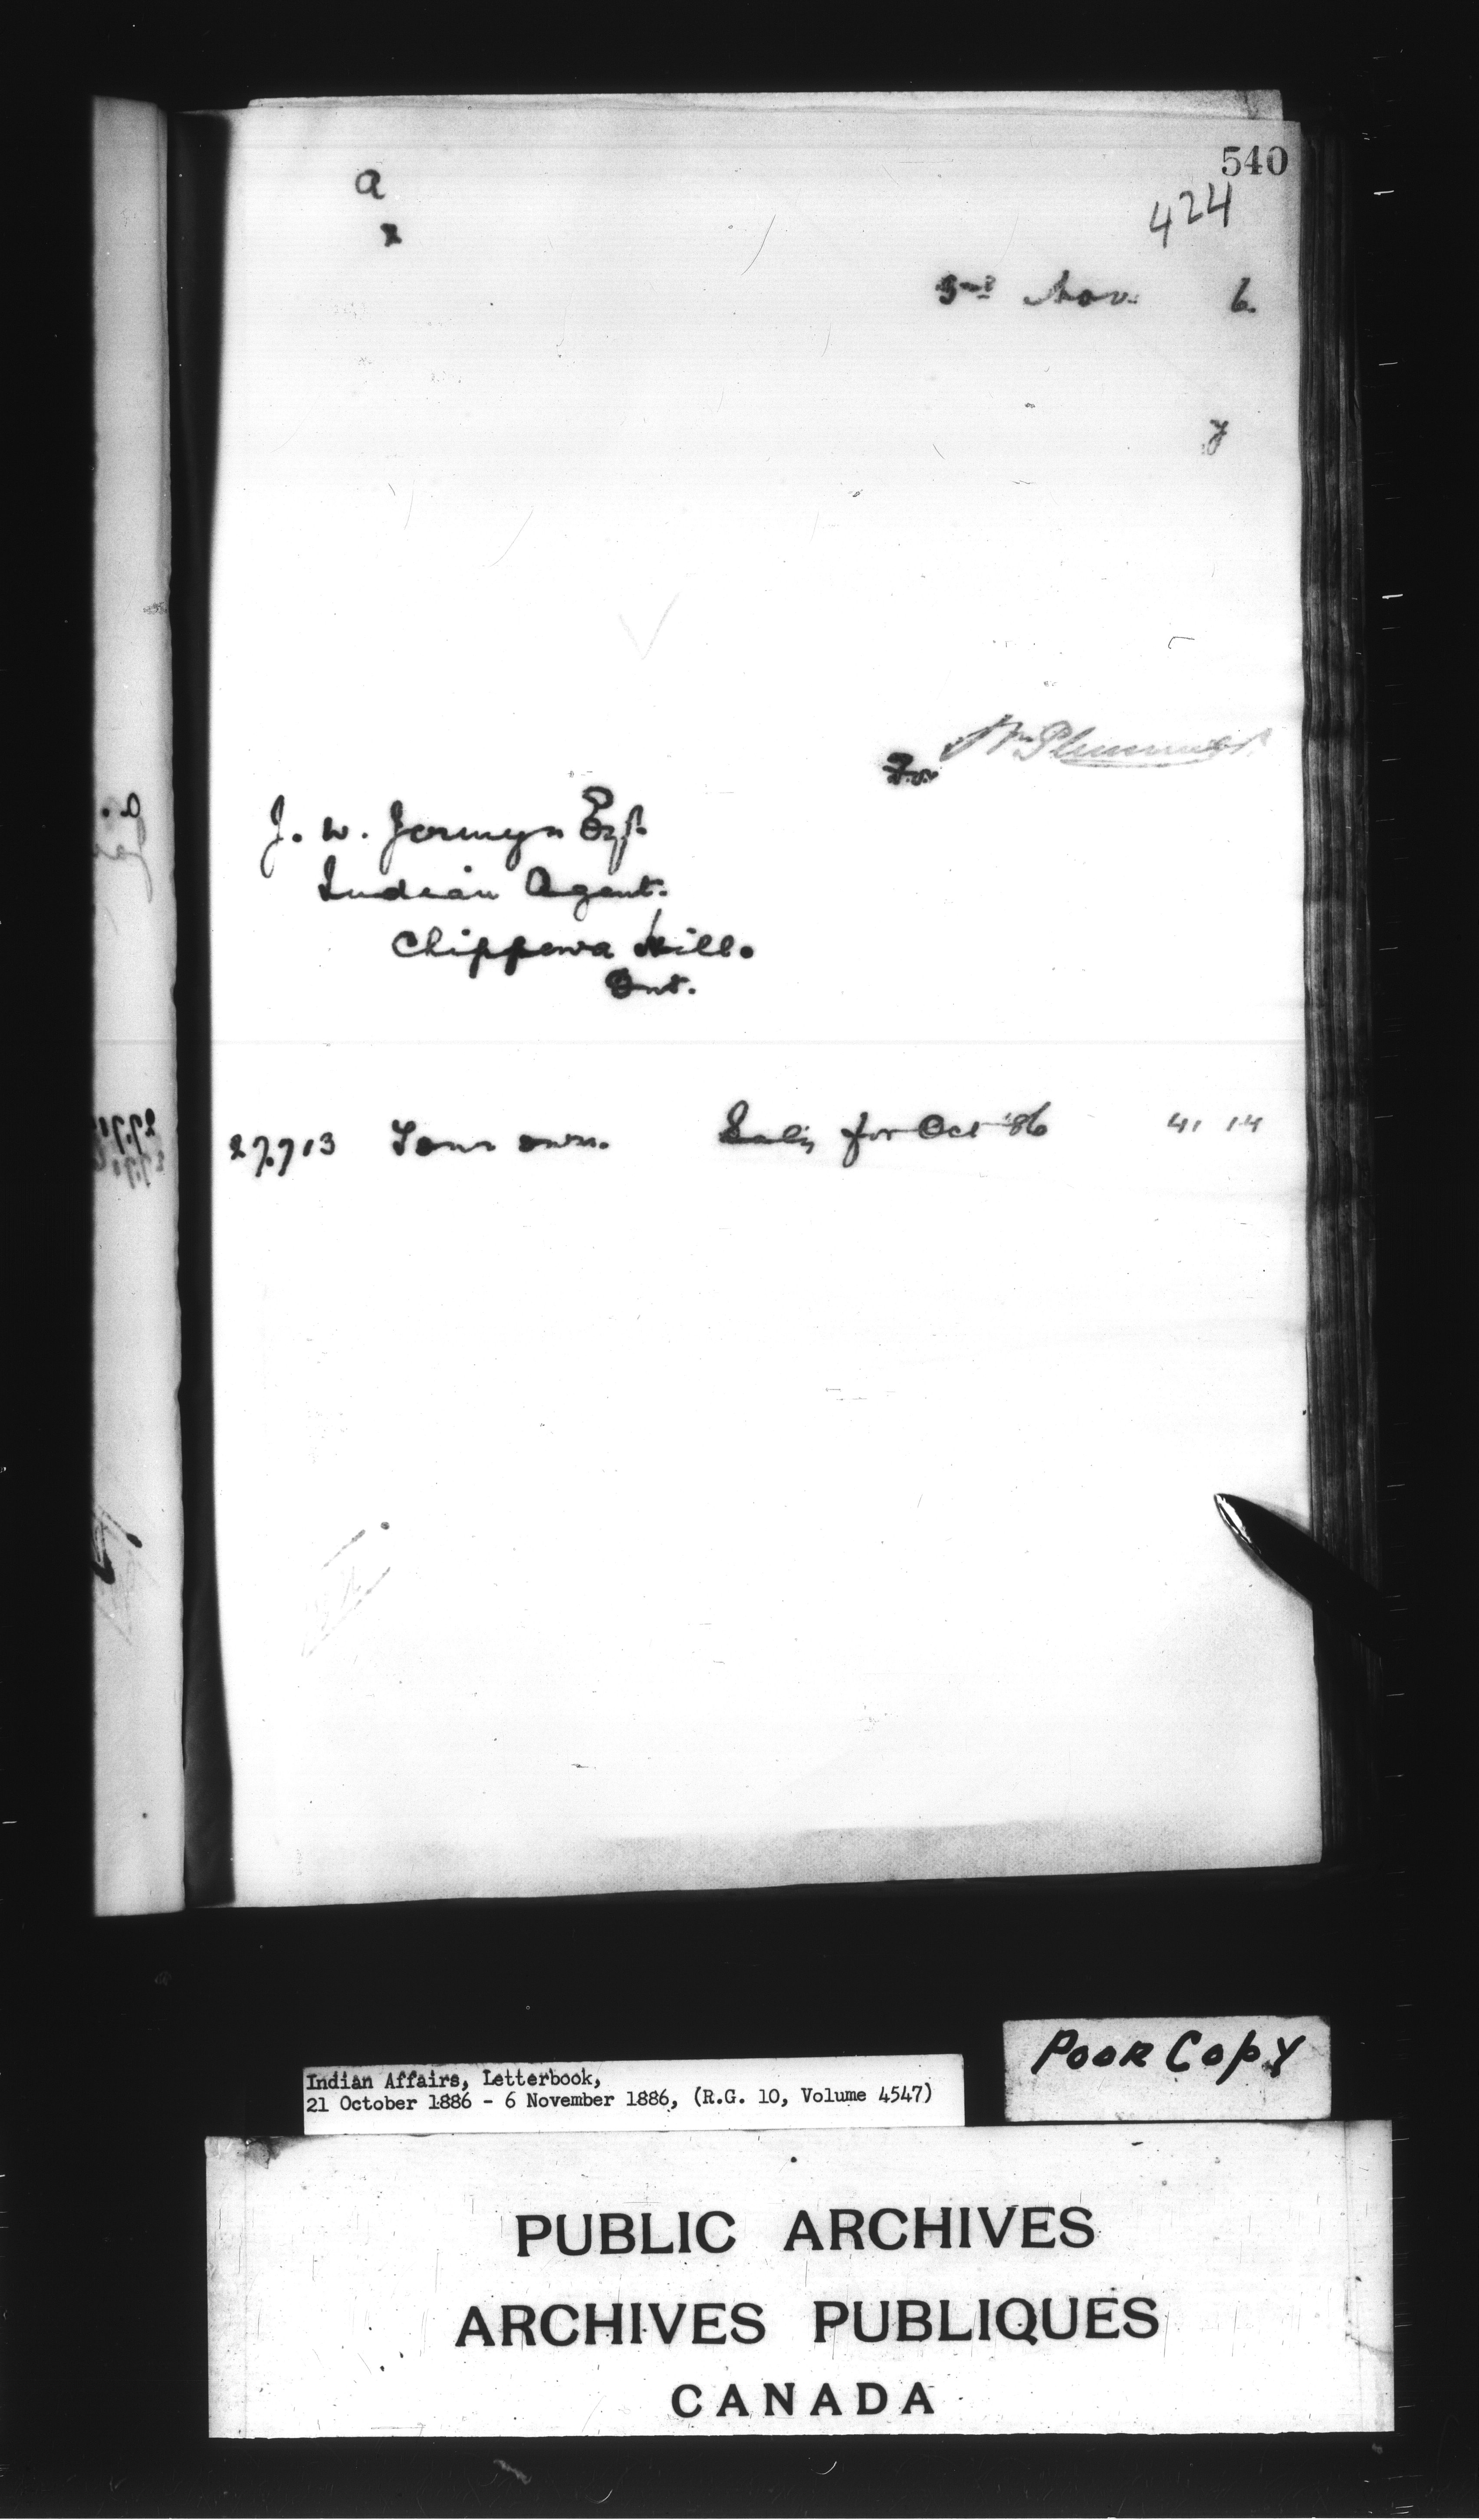 540
a
x
424
3rd Nov. 6.
y
Wm Plummer
For
J. W. Jermyn Esq.
Indian Agent.
Chippewa Hill.
Ont.
27.713 Your own. Saly for Oct '86 41 14
Poor Copy
Indian Affairs, Letterbook,
21 October 1886 - 6 November 1886, (R.G. 10, Volume 4547)
PUBLIC ARCHIVES
ARCHIVES PUBLIQUES
CANADA